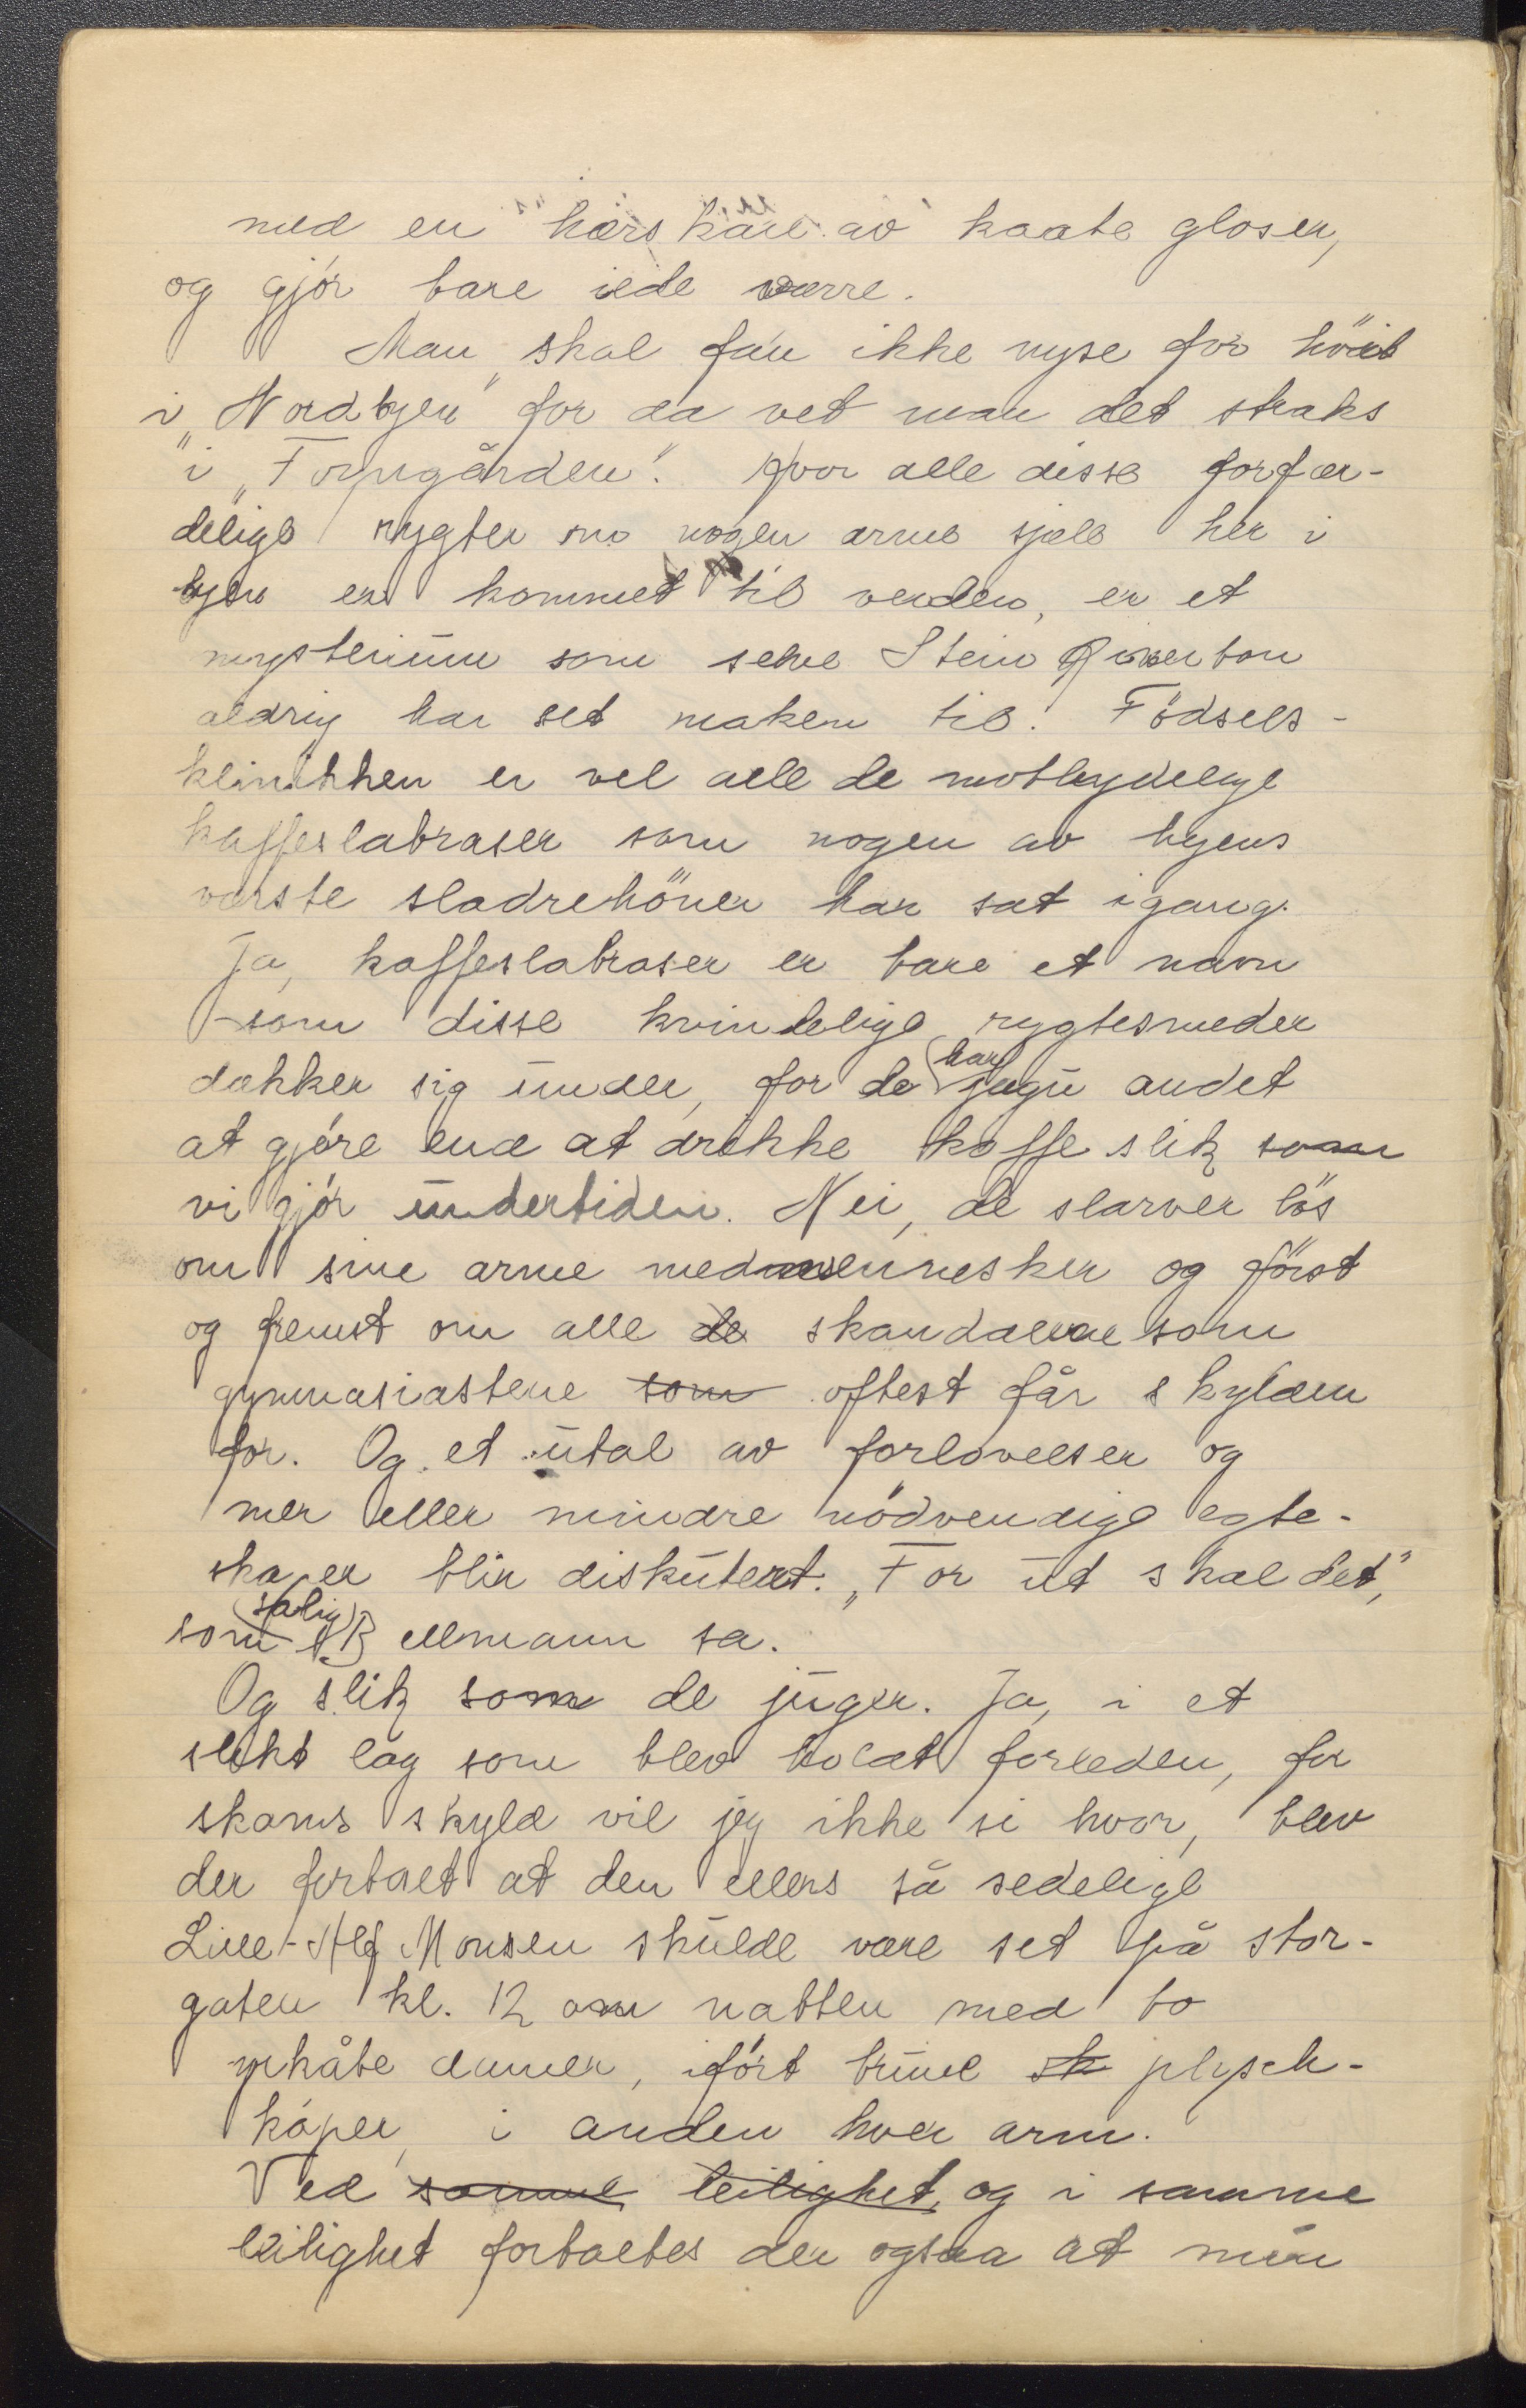 med en hærskare av kaate gloser,
og gjör bare ilde værre.
Man skal fan ikke nyse for höit
i „Nordbyen" for da vet man det straks
i „Torpegården". Hvor alle disse forfær-
delige rygter om nogen arme sjæle her i
byen er kommet til verden, er et
mysterium som selve Stein Riverton
aldrig har set maken til. Födsels-
klinikken er vel alle de motbydelige
kaffeslabraser som nogen av byens
værste sladrehöner har sat igang.
Ja, kaffeslabraser er bare et navn
som disse kvindelige rygtesmeder
dækker sig under, for de (har) jagu andet
at gjöre end at drikke kaffe slik som
vi gjör undertiden. Nei, de slarver lös
om sine arme medmennesker og först
og fremst om alle de skandalene som
gymnasiastene som oftest får skylden
for. Og et utal av forlovelser og
mer eller mindre nödvendige egte-
skaper blir diskutert. „For ut skal det",
som (salig) Bellmann sa.
Og slik som de juger. Ja, i et
slikt lag som blev holdt forleden, for
skams skyld vil jeg ikke si hvor, blev
der fortalt at den ellers så sedelige
Lille-Alf Monsen skulde være set på stor-
gaten kl. 12 om natten med to
yrkåte damer, ifört brune sk plysch-
kåper, i anden hver arm.
Ved samme leilighet, og i samme
leilighet fortaltes der ogsaa at min